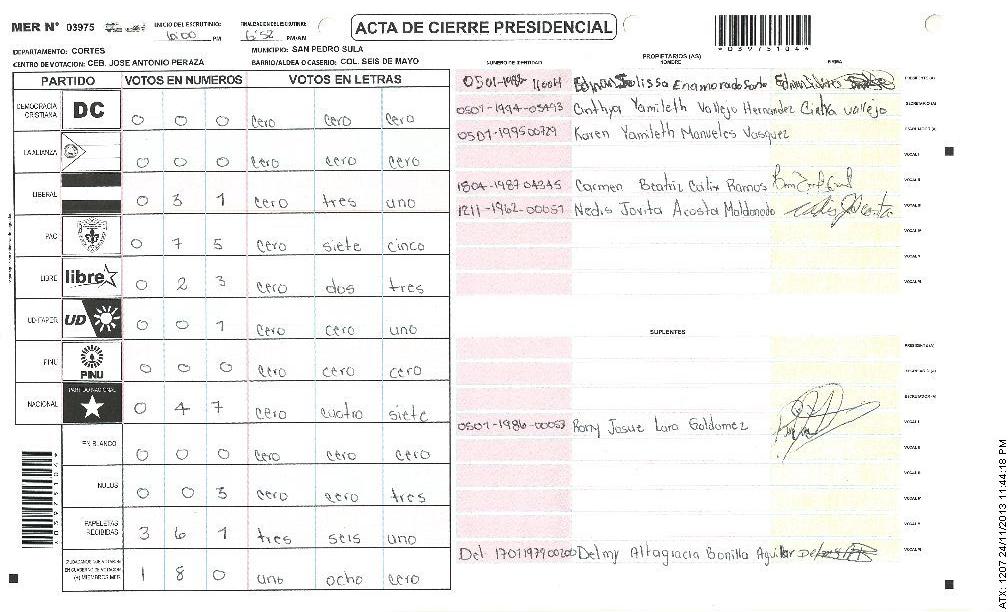 MER N° 03975
INICIO DEL ESCRUTINIO: 6:00 PM
FINALIZACION DEL ESCRUTINIO: 6:52 PM/AM
ACTA DE CIERRE PRESIDENCIAL
DEPARTAMENTO: CORTES
MUNICIPIO: SAN PEDRO SULA
CENTRO DE VOTACION: CEB. JOSE ANTONIO PERAZA
BARRIO/ALDEA O CASERIO: COL. SEIS DE MAYO
PARTIDO VOTOS EN NUMEROS VOTOS EN LETRAS
DEMOCRACIA CRISTIANA DC 0 0 0 cero cero cero
LA ALIANZA 0 0 0 cero cero cero
LIBERAL 0 3 1 cero tres uno
PAC 0 7 5 cero siete cinco
LIBRE libre 0 2 3 cero dos tres
UD-FAPER UD 0 0 1 cero cero uno
PINU PINU 0 0 0 cero cero cero
NACIONAL PARTIDO NACIONAL 0 4 7 cero cuatro siete
EN BLANCO 0 0 0 cero cero cero
NULOS 0 0 3 cero cero tres
PAPELETAS RECIBIDAS 3 6 1 tres seis uno
CIUDADANOS QUE VOTARON EN CUADERNO DE VOTACION (+) MIEMBROS MER 1 8 0 uno ocho cero
PROPIETARIOS (AS)
NUMERO DE IDENTIDAD NOMBRE FIRMA
Enamorado PRESIDENTE (A)
0501-1994-03493 Cinthya Yamileth Vallejo Hernandez Cinthya vallejo SECRETARIO (A)
0501-199500729 Karen Yamileth Manueles Vasquez ESCRUTADOR (A)
VOCAL I
1804-1987 04345 Carmen Beatriz Calix Ramos VOCAL II
1211-1962-00057 Nedis Jovita Acosta Maldonado VOCAL III
VOCAL IV
VOCAL V
VOCAL VI
SUPLENTES
PRESIDENTE (A)
SECRETARIO (A)
ESCRUTADOR (A)
0501-1986-00053 Rony Josue Lara Galdamez VOCAL I
VOCAL II
VOCAL III
VOCAL IV
VOCAL V
Del Delmy Altagracia Bonilla Aguilar VOCAL VI
ATX: 1207 24/11/2013 11:44:18 PM